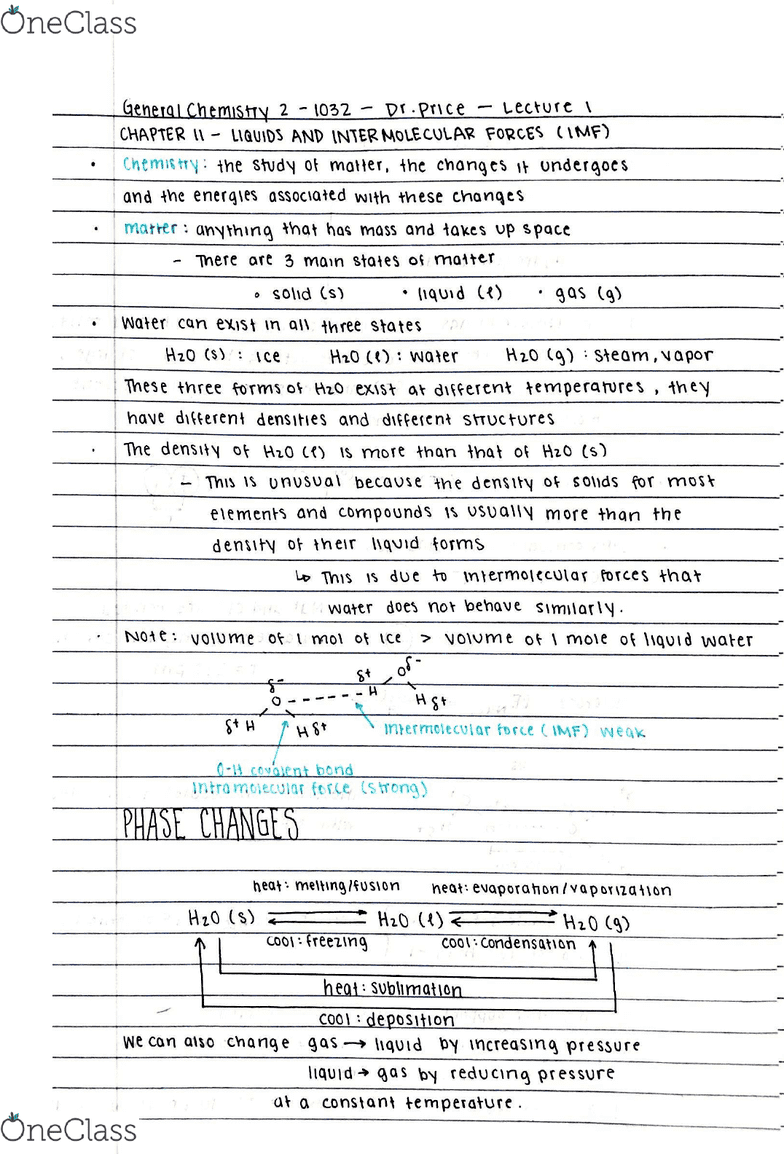 OneClass
General Chemistry 2 - 1032 - Dr. Price - Lecture 1
CHAPTER 11 - LIQUIDS AND INTERMOLECULAR FORCES (IMF)
• Chemistry: the study of matter, the changes it undergoes
and the energies associated with these changes
• matter: anything that has mass and takes up space
- There are 3 main states of matter
∘ solid (s) • liquid (ℓ) • gas (g)
• Water can exist in all three states
H2O (s) : ice H2O (ℓ) : water H2O (g) : steam, vapor
These three forms of H2O exist at different temperatures, they
have different densities and different structures
• The density of H2O (ℓ) is more than that of H2O (s)
- This is unusual because the density of solids for most
elements and compounds is usually more than the
density of their liquid forms
↳ This is due to intermolecular forces that
water does not behave similarly.
• Note: volume of 1 mol of ice > volume of 1 mole of liquid water
δ- O H δ+ O δ-
δ+ H H δ+ H δ+
Intermolecular force (IMF) weak
O-H covalent bond
Intramolecular force (strong)
PHASE CHANGES
heat: melting/fusion heat: evaporation/vaporization
H2O (s) ⇌ H2O (ℓ) ⇌ H2O (g)
cool: freezing cool: condensation
heat: sublimation
cool: deposition
We can also change gas → liquid by increasing pressure
liquid → gas by reducing pressure
at a constant temperature.
OneClass